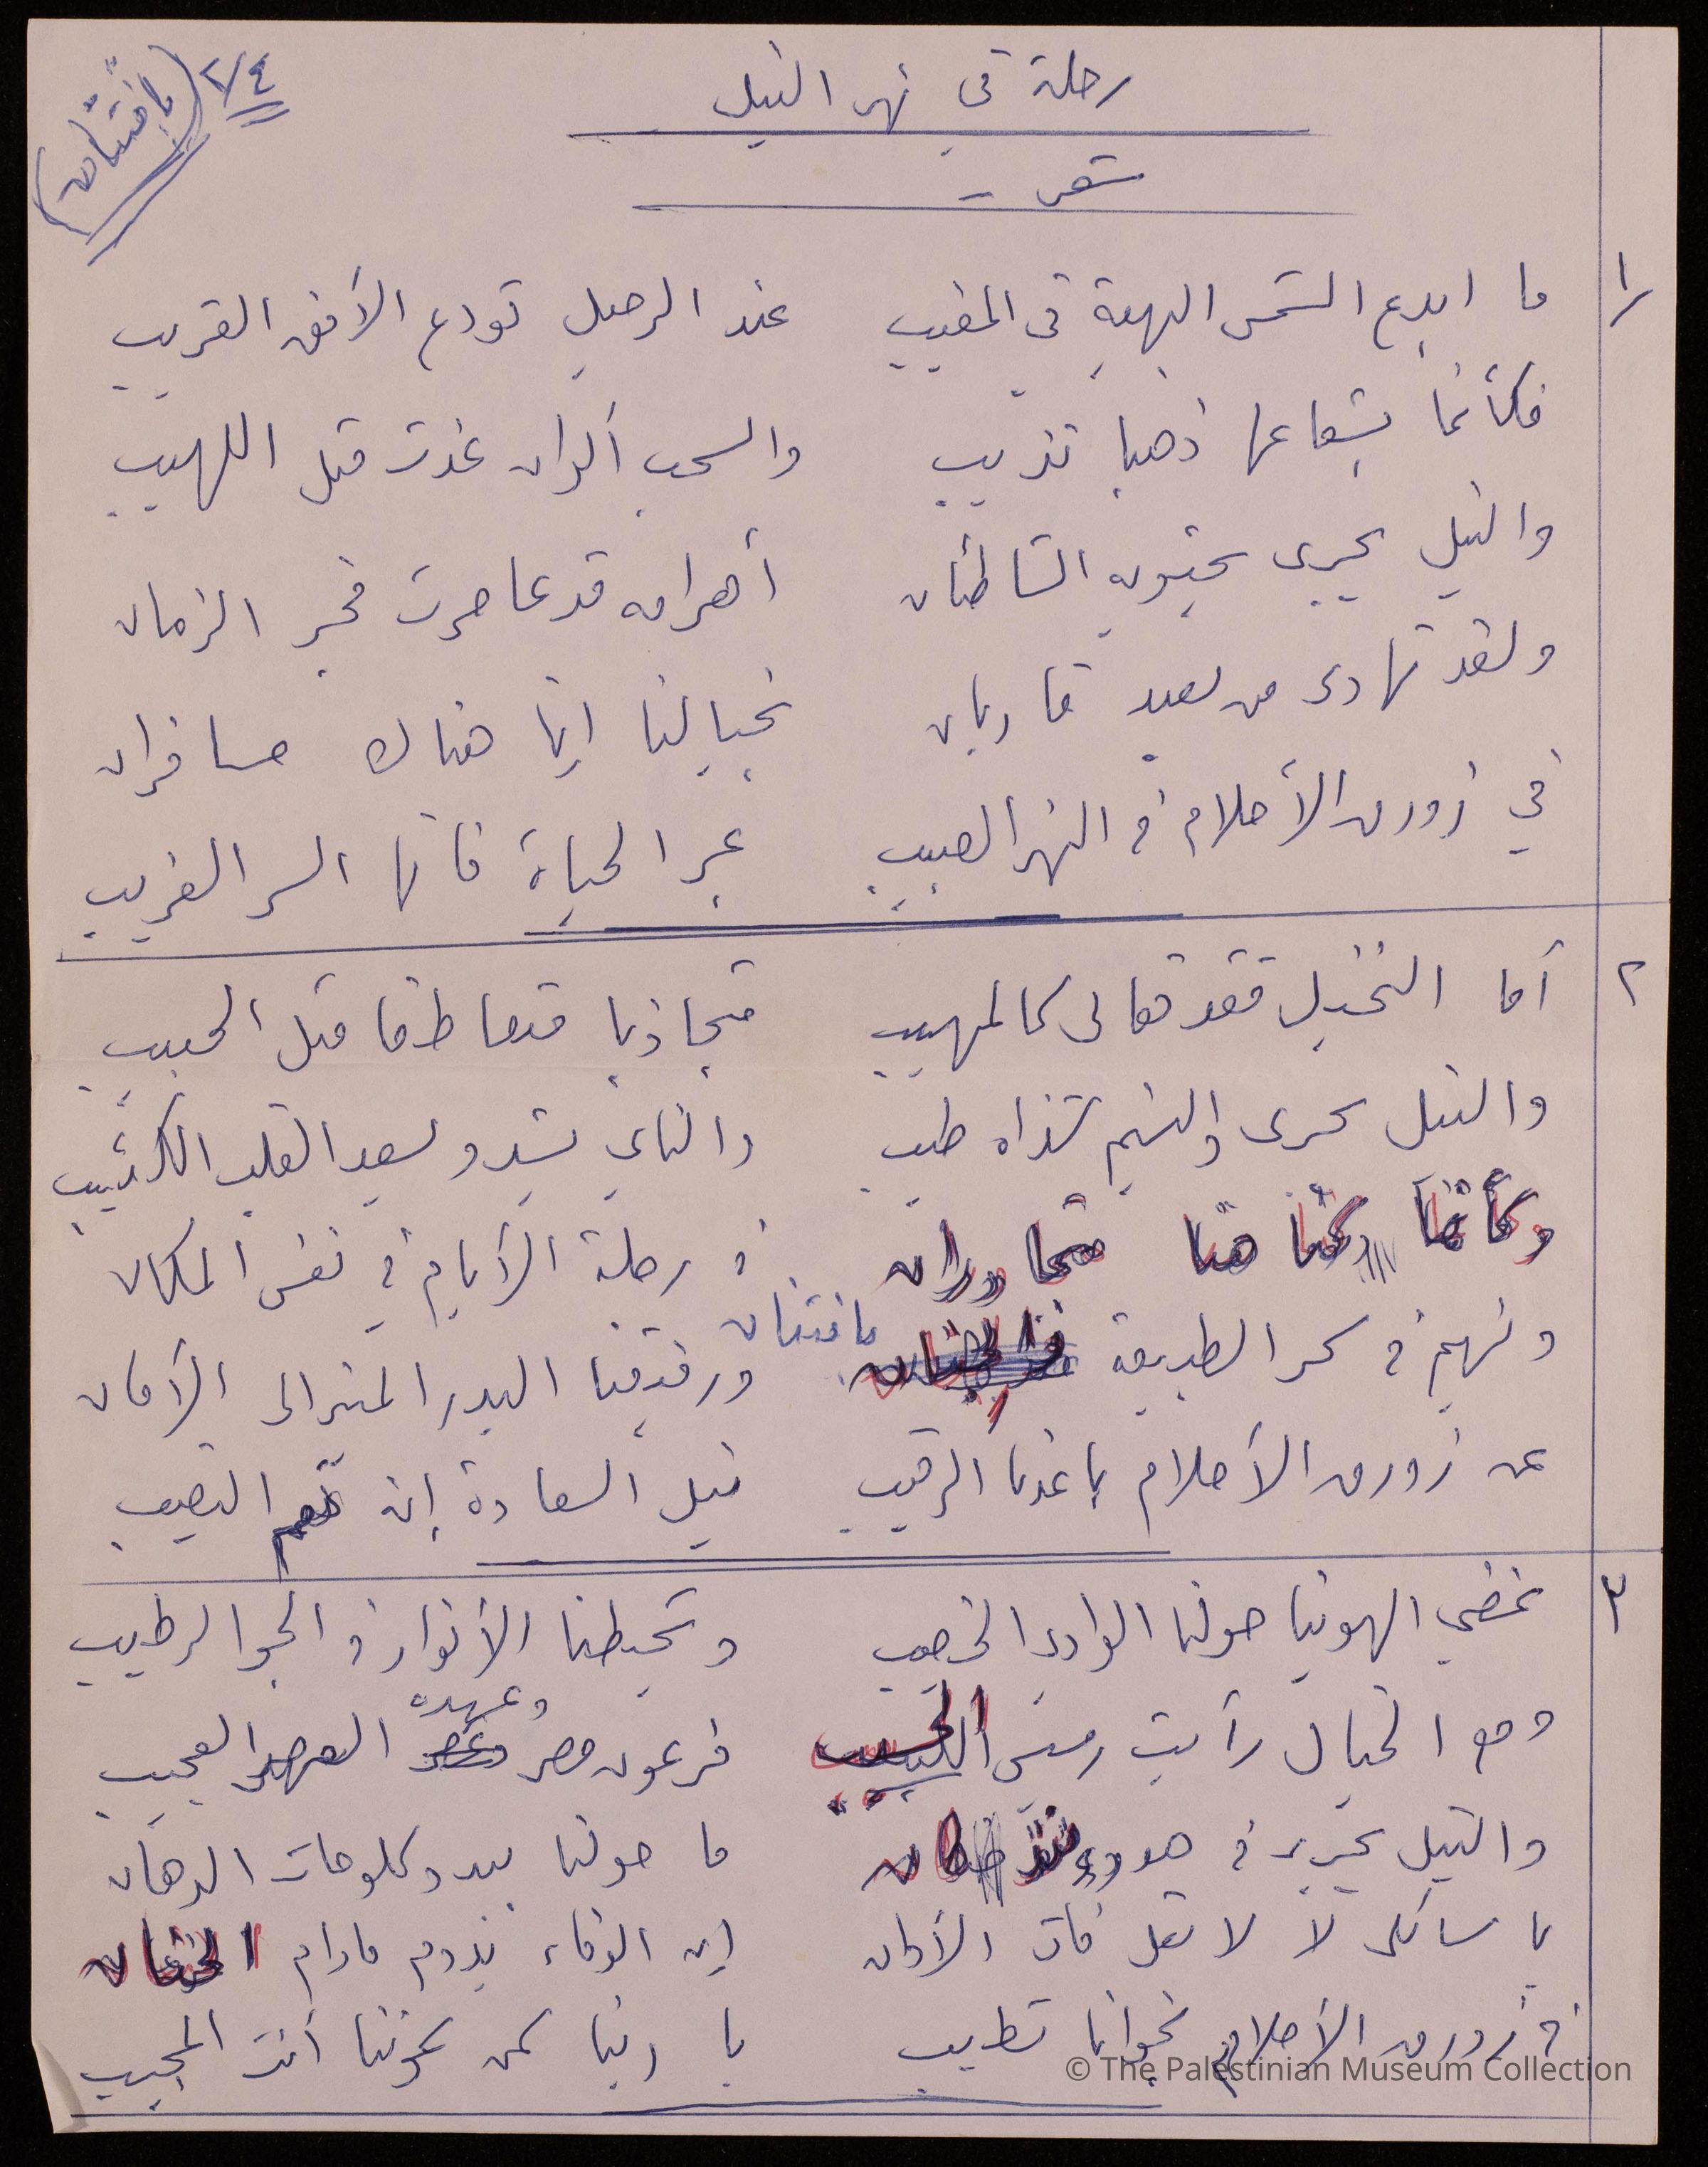 رحلة في نهر النيل
شعر -
٢/٤ (بافتتان)
١/ ما ابدع الشمس البهية في المغيب عند الرحيل تودع الأفق القريب
فكأنما بشعاعها ذهبا تذيب والسحب ألوان غدت مثل اللهيب
والنيل يجري يحتويه الشاطئان أهرامه قد عاصرت فجر الزمان
ولقد تهادى من بعيد قاربان بخيالنا انا هناك مسافران
في زورق الأحلام في النهر الحبيب عبر الحياة فانها السر الغريب
٢ أما النخيل فقد تعالى كالمهيب متجاذبا متعاطفا مثل الحبيب
والنيل يجرى والنسيم شذاه طيب والناي يشدو يسعد القلب الكئيب
وكأننا كنا هنا متجاوران في رحلة الأيام في نفس المكان
ونهيم في سحر الطبيعة بافتتان ورفيقنا البدر المنير الى الأمان
عن زورق الأحلام باعدنا الرقيب نيل السعادة إنه نعم النصيب
٣ نمضي الهوينا حولنا الوادي الخصيب وتحيطنا الأنوار في الجو الرطيب
ومع الخيال رأيت رمسيس فرعون مصر وعهده العجيب
والنيل يجري في هدوء ما حولنا يبدو كلوحات الدهان
يا سائلي لا لا تقل فات الأوان إن الوفاء يدوم مادام الحنان
في زورق الأحلام نجوانا تطيب يا ربنا كن عوننا أنت المجيب
© The Palestinian Museum Collection